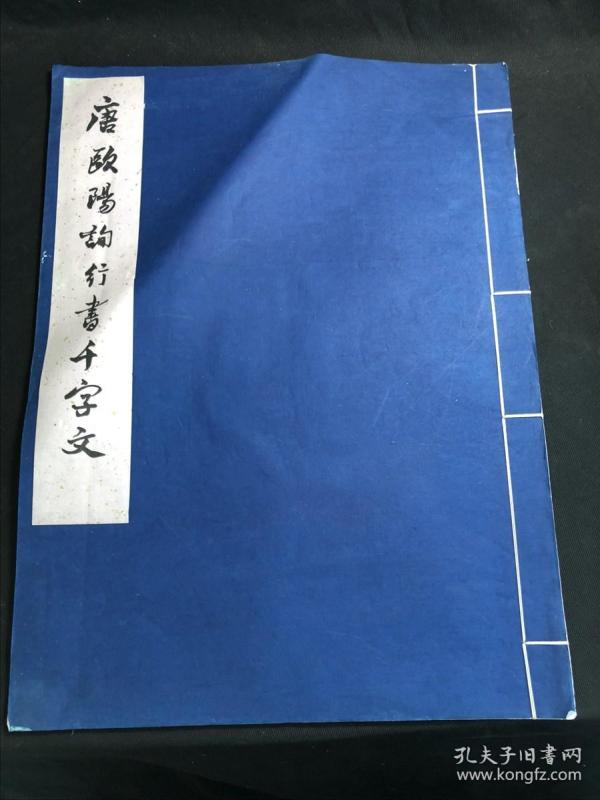 唐歐陽詢行書千字文
孔夫子旧書网
www.kongfz.com